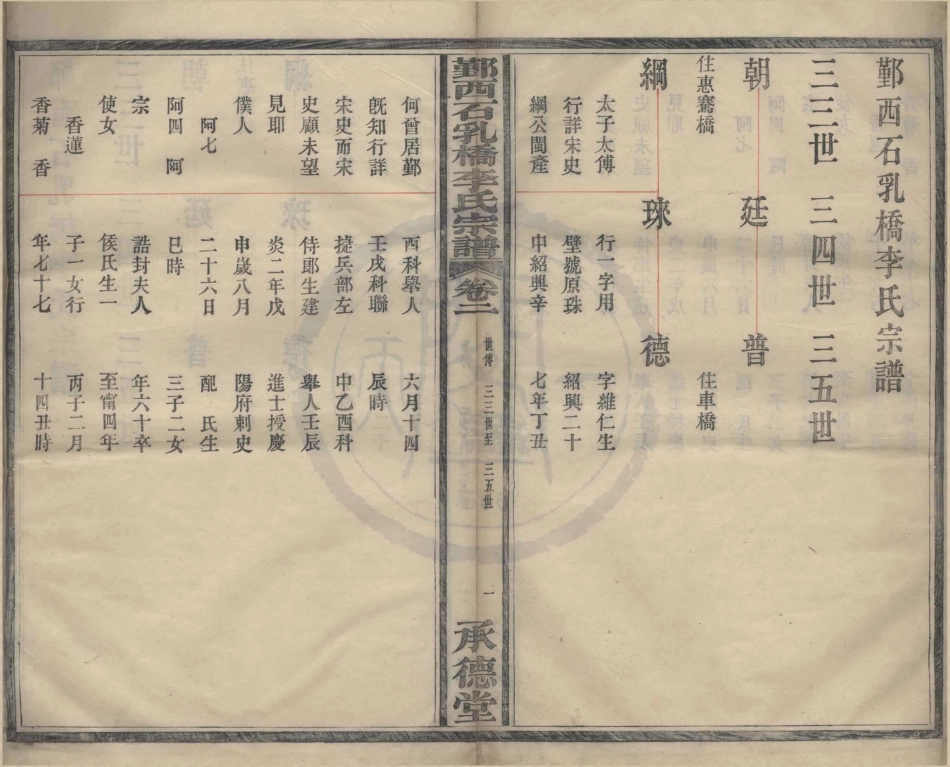 鄞西石乳橋李氏宗譜
三三世 三四世 三五世
朝 廷 普
住惠騫橋 住車橋
綱 琜 德
太子太傅 行一字用 字維仁生
行詳宋史 璧號原珠 紹興二十
綱公閩產 中紹興辛 七年丁丑
鄞西石乳橋李氏宗譜 卷二 世傳 三三世至 三五世 一 承德堂
何曾居鄞 酉科舉人 六月十四
旣知行詳 壬戌科聯 辰時
宋史而宋 捷兵部左 中乙酉科
史顧未望 侍郞生建 舉人壬辰
見耶 炎二年戊 進士授慶
僕人 申歲八月 陽府刺史
阿七 二十六日 配 氏生
阿四 阿 巳時 三子二女
宗 誥封夫人 年六十卒
使女 侯氏生一 至甯四年
香蓮 子一女行 丙子二月
香菊 香 年七十七 十四丑時